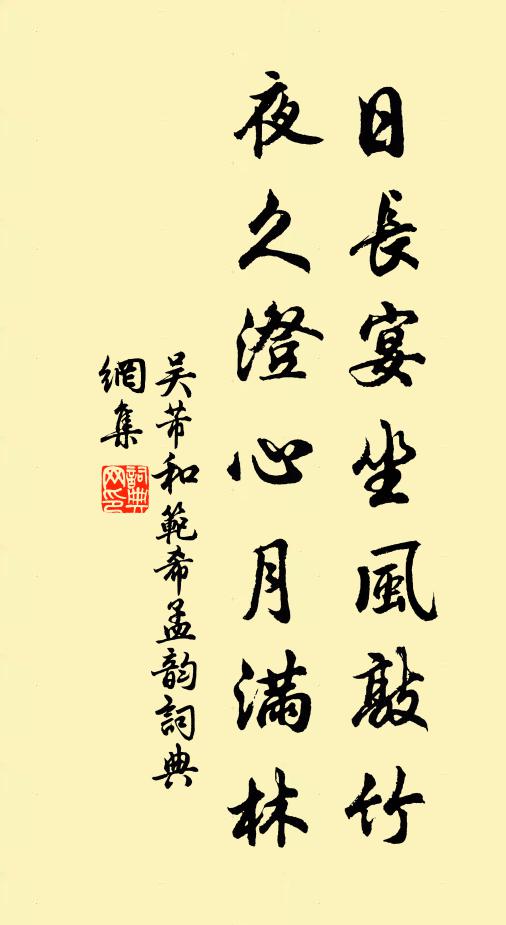 日長宴坐風敲竹
夜久澄心月滿林
吳芾和範希孟韵詞典
網集
詞典網印